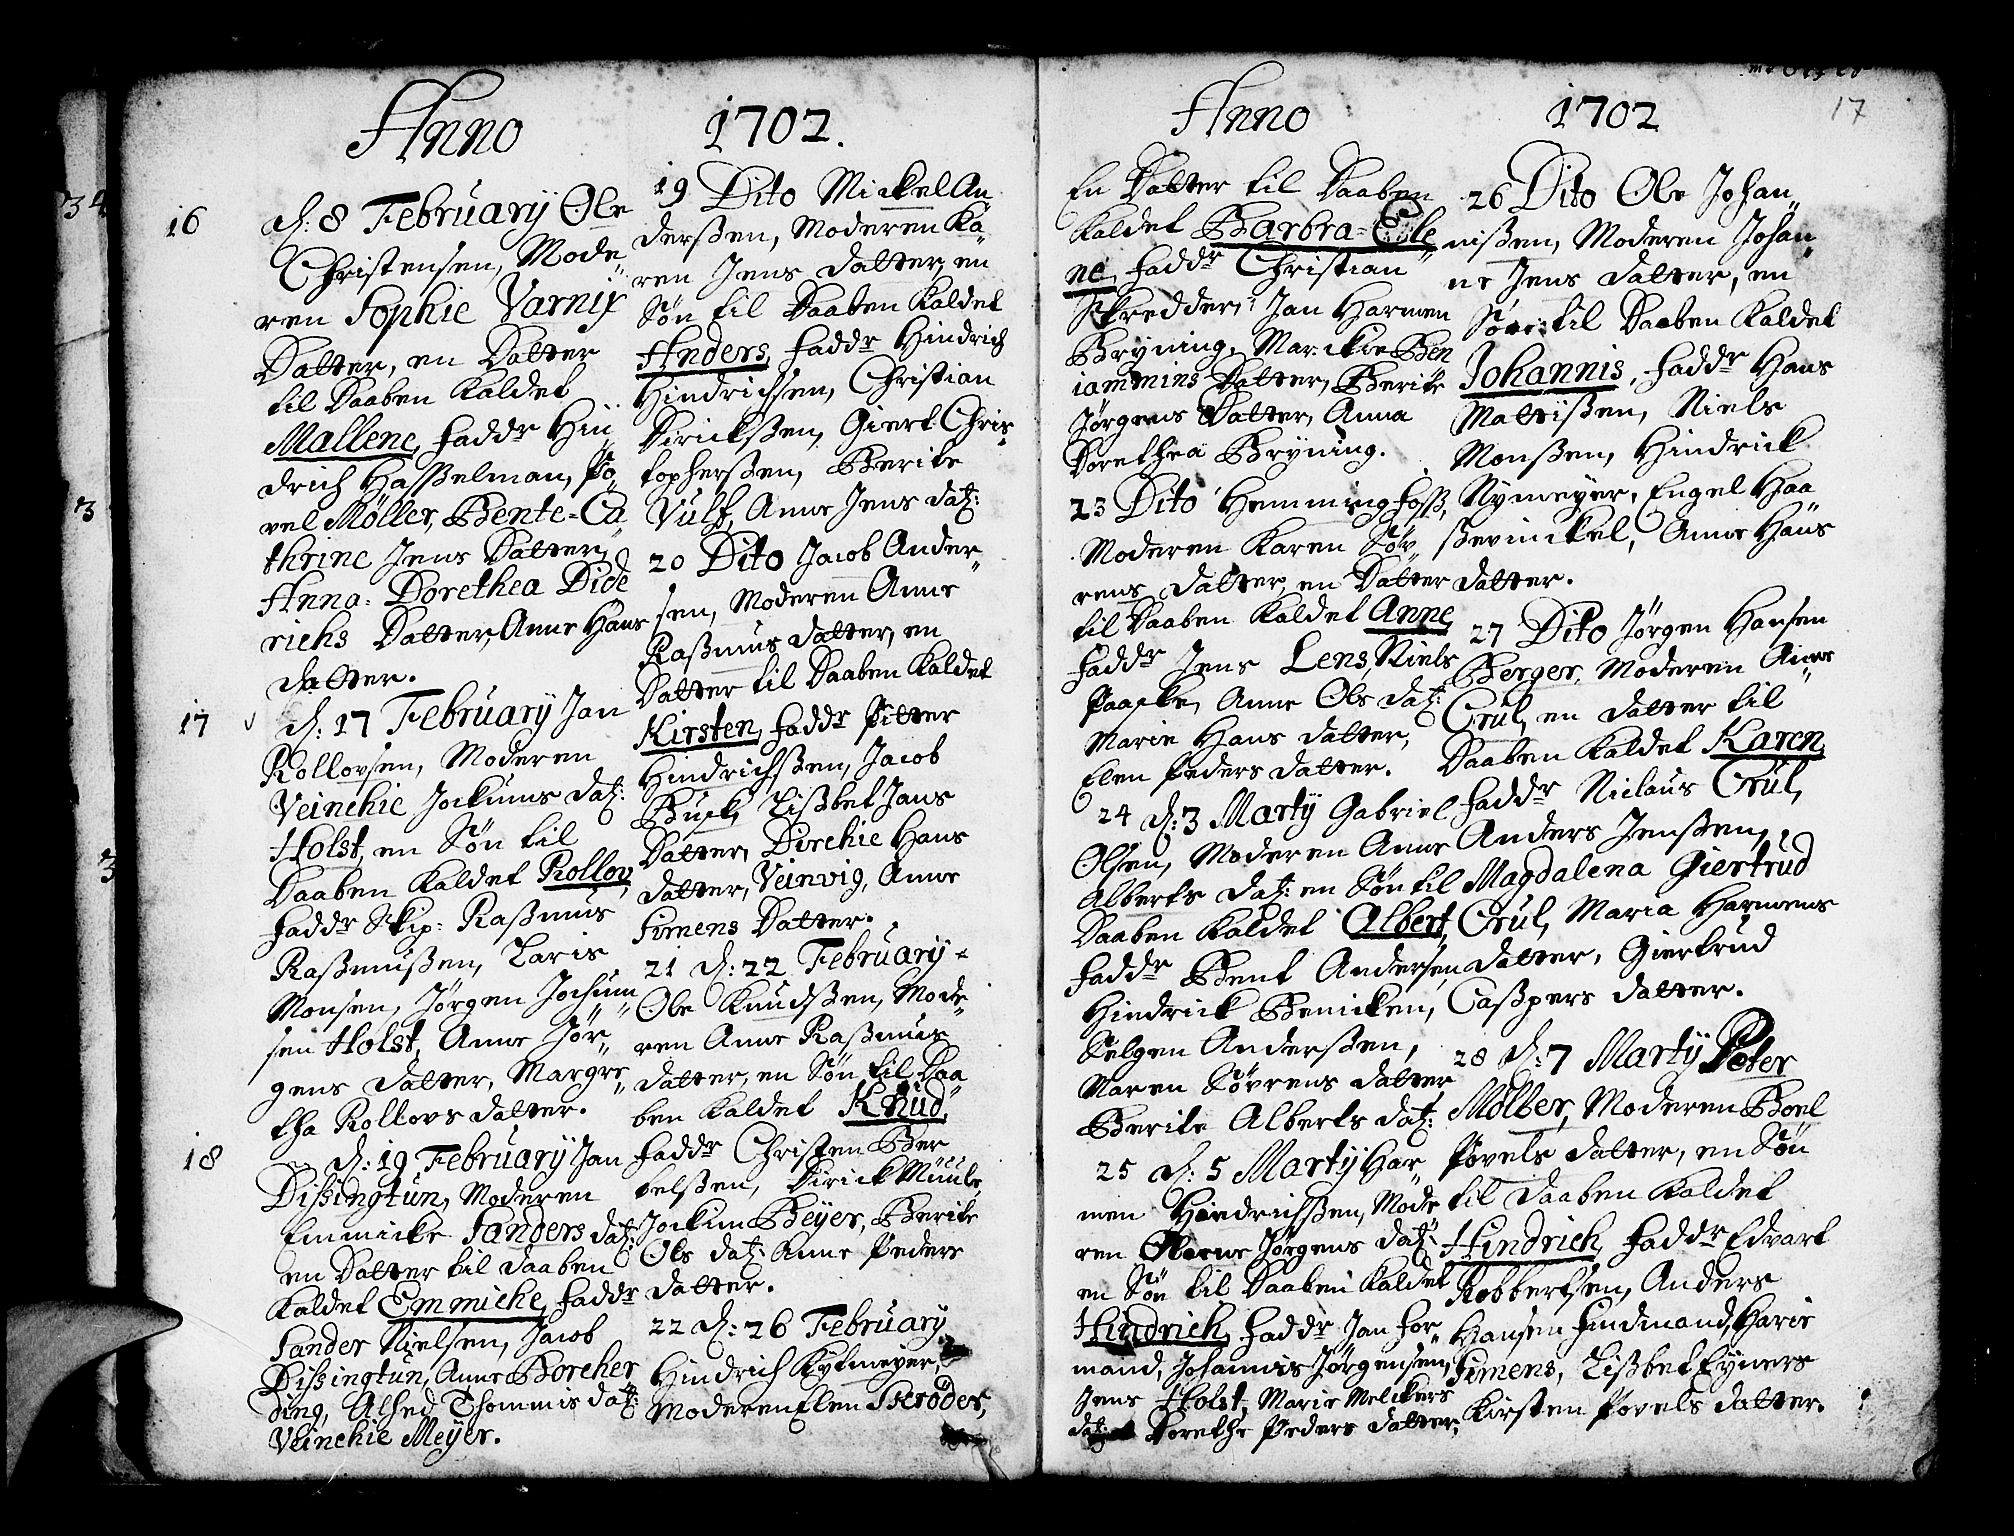 Anno 1702.
16 d: 8 Februarÿ Ole
Christensen, Mode„
ren Sophie Varnix
Datter, en Datter
til Daaben Kaldet
Mallene, Faddr Hin„
drich Hasselman, Po„
vel Møller, Bente=Ca„
thrine Jens Datter,
Anna=Dorethea Dide„
richs Datter, Anne Hans
datter.
17 d: 17 Februarÿ Jan
Rollovsen, Moderen
Veinchie Jockums dat:
Holst, en Søn til
Daaben Kaldet Rollov,
Faddr Skip: Rasmus
Rasmusen, Laris
Monsen, Jørgen Jochum„
sen Holst, Anne Jør„
gens datter, Margre„
tha Rollovs datter.
18 d: 19 Februarÿ Jan
Dissingtun, Moderen
Emmicke Sanders dat:
en Datter til daaben
Kaldet Emmiche, Faddr
Sander Nielsen, Jacob
Dissingtun, Anne Borcher
ding, Alhed Thommis dat:
Veinchie Meÿer.
19 Dito Mickel An„
dersen, Moderen Ka„
ren Jens datter, en
Søn til Daaben Kaldet
Anders, Faddr Hindrich
Hindrichsen, Christian
Diricksen, Giert Chris„
tophersen, Berite
Vulf, Anne Jens dat:
20 Dito Jacob Ander„
sen, Moderen Anne
Rasmus datter, en
Datter til Daaben Kaldet
Kirsten, Faddr Pitter
Hindrichsen, Jacob
Buck, Lisbet Jans
Datter, Dirchie Hans
datter, Veinvig, Anne
Simens Datter.
21 d: 22 Februarÿ
Ole Knudsen, Mode„
ren Anne Rasmus
datter, en Søn til Daa„
ben Kaldet Knud,
Faddr Christen Ber
telsen, Dirick Muule,
Jockim Beÿer, Berite
Ols dat: Anne Peders
datter.
22 d: 26 Februarÿ
Hindrich Rÿtmeÿer,
Moderen Elen Skrøders,
17
Anno 1702
En Datter til Daaben
Kaldet Barbra=Ele„
ne, Faddr Christian
Skredder, Jan Harmen
Brÿning, Marickie Ben
iammins Datter, Berite
Jørgens Datter, Anna
Dorethea Brÿning.
23 Dito Hemming Foss,
Moderen Karen Søv„
rens datter, en Datter
til Daaben Kaldet Anne,
Faddr Jens Lens, Niels
Paaske, Anne Ols dat:
Marie Hans datter,
Elen Peders datter.
24 d: 3 Martÿ Gabriel
Olsen, Moderen Anne
Alberts dat: en Søn til
Daaben Kaldet Albert,
Faddr Bent Andersen,
Hindrick Benicken,
Selgen Andersen,
Maren Søvrens datter
Berite Alberts dat:
25 d: 5 Martÿ Har„
men Hindrichsen, Mode„
ren Jørgens dat:
en Søn til Daaben Kaldet
Hindrich, Faddr Jan For„
mand, Johannis Jørgensen,
Jens Holst, Marie Melckers
dat: Dorethe Peders datter,
26 Dito Ole Johan„
nisen, Moderen Johan„
ne Jens datter, en
Søn til Daaben Kaldet
Johannis, Faddr Hans
Mattisen, Niels
Monsen, Hindrick
Nymeyer, Engel Haa
sevinckel, Anne Hans
datter.
27 Dito Jørgen Hansen
Berger, Moderen Anne
Crul, en datter til
Daaben Kaldet Karen,
Faddr Niclaus Crul,
Anders Jensen,
Magdalena Giertrud
Crul, Maria Harmens
datter, Giertrud
Caspers datter.
28 d: 7 Martÿ Peter
Møller, Moderen Boel
Povels datter, en Søn
til daaben Kaldet
Hindrich, Faddr Edvart
Robbertsen, Anders
Hansen Findmand, Haris
Simens, Lisbet Eyners
Kirsten Povels datter.